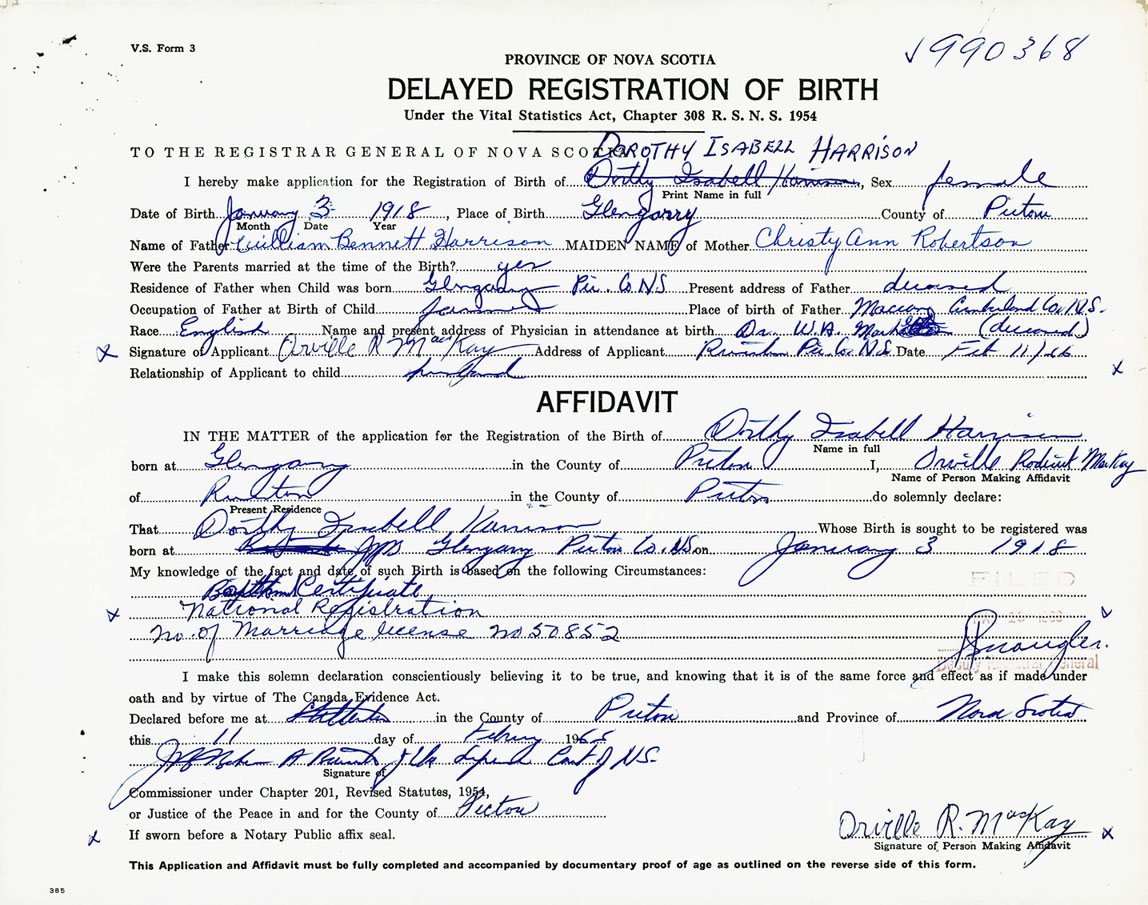 V.S. Form 3
√990368
PROVINCE OF NOVA SCOTIA
DELAYED REGISTRATION OF BIRTH
Under the Vital Statistics Act, Chapter 308 R. S. N. S. 1954
DOROTHY ISABELL HARRISON
TO THE REGISTRAR GENERAL OF NOVA SCOTIA
I hereby make application for the Registration of Birth of Dorthy Isabell Harrison, Sex female
Print Name in full
Date of Birth January 3 1918, Place of Birth Glengarry County of Pictou
Month Date Year
Name of Father William Bennett Harrison MAIDEN NAME of Mother Christy Ann Robertson
Were the Parents married at the time of the Birth? yes
Residence of Father when Child was born Glengarry Pic. Co. N.S Present address of Father deceased
Occupation of Father at Birth of Child farmer Place of birth of Father Maccan Cumberland Co. N.S.
Race English Name and present address of Physician in attendance at birth Dr. W.A. (deceased)
x Signature of Applicant Orville R MacKay Address of Applicant Pic. Co. N.S Date Feb 11/66
x
Relationship of Applicant to child husband
AFFIDAVIT
IN THE MATTER of the application for the Registration of the Birth of Dorthy Isabell Harrison
Name in full
born at Glengarry in the County of Pictou I, Orville Roderick MacKay
Name of Person Making Affidavit
of in the County of Pictou do solemnly declare:
Present Residence
That Dorthy Isabell Harrison Whose Birth is sought to be registered was
born at Glengarry Pictou Co. N.S on January 3 1918
My knowledge of the fact and date of such Birth is based on the following Circumstances:
FILED
Certificate
x National Registration
No. of Marridge license no 50852
Deputy Registrar General
I make this solemn declaration conscientiously believing it to be true, and knowing that it is of the same force and effect as if made under
oath and by virtue of The Canada Evidence Act.
Declared before me at in the County of Pictou and Province of Nova Scotia
this 11 day of 1966
N.S.
Signature of
Commissioner under Chapter 201, Revised Statutes, 1954,
or Justice of the Peace in and for the County of Pictou
x If sworn before a Notary Public affix seal.
Orville R. MacKay x
Signature of Person Making Affidavit
This Application and Affidavit must be fully completed and accompanied by documentary proof of age as outlined on the reverse side of this form.
385